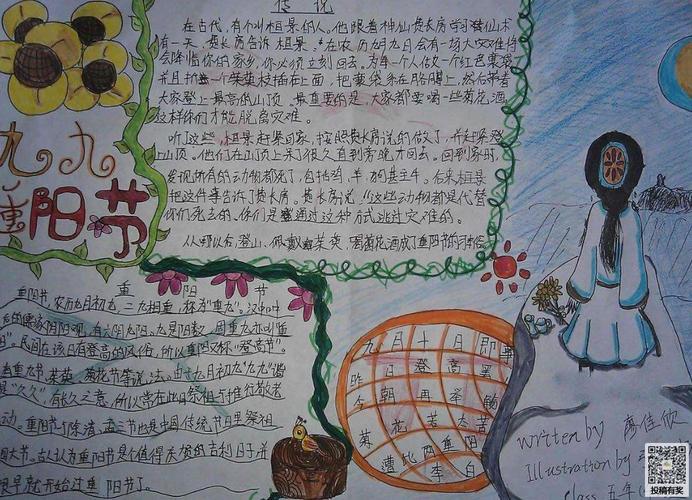 传说
在古代,有个叫桓景的人。他跟着神仙费长房学习仙术
有一天,费长房告诉桓景:“在农历九月九日会有一场大灾难将
会降临你的家乡,你必须立刻回去,为每一个人做一个红色囊袋
并且折一个茱萸枝插在上面,把囊袋系在胳膊上,然后带着
大家登上最高的山顶。最重要的是,大家都要喝一些菊花酒
这样你们才能脱离灾难。
听了这些,桓景赶紧回家,按照费长房说的做了,
山顶。他们在山顶上呆了很久直到旁晚才回去。回到家时,
发现所有的动物都死了,包括鸡、羊、狗甚至牛。后来桓景
把这件事告诉了费长房。费长房说:“这些动物都是代替
你们死去的,你们是通过这种方式逃过灾难的。
从那以后,登山、佩戴茱萸,喝菊花酒成了重阳节的习俗
九九
重阳节
重阳节
重阳节,农历九月初九,二九相重,称为“重九”。汉中叶
后的儒家阴阳观,有六阴九阳。九是阳数,固重九亦叫“重
民间在该日有登高的风俗,所以重阳又称“登高节”。
重九节、茱萸、菊花节等说法。由于九月初九“九九”谐
是“久久”,有长久之意,所以常在此日祭祖与推行敬老
动。重阳节与除、清、盂三节也是中国传统节日里祭祖
大节。古人认为重阳节是个值得庆贺的吉利日子并
很早就开始过重阳节了。
九月十日即事
昨日登高罢
今朝再举觞
菊花何太苦
遭此两重阳
李白
written by 廖佳欣
Illustration by
class 五年
投稿有奖